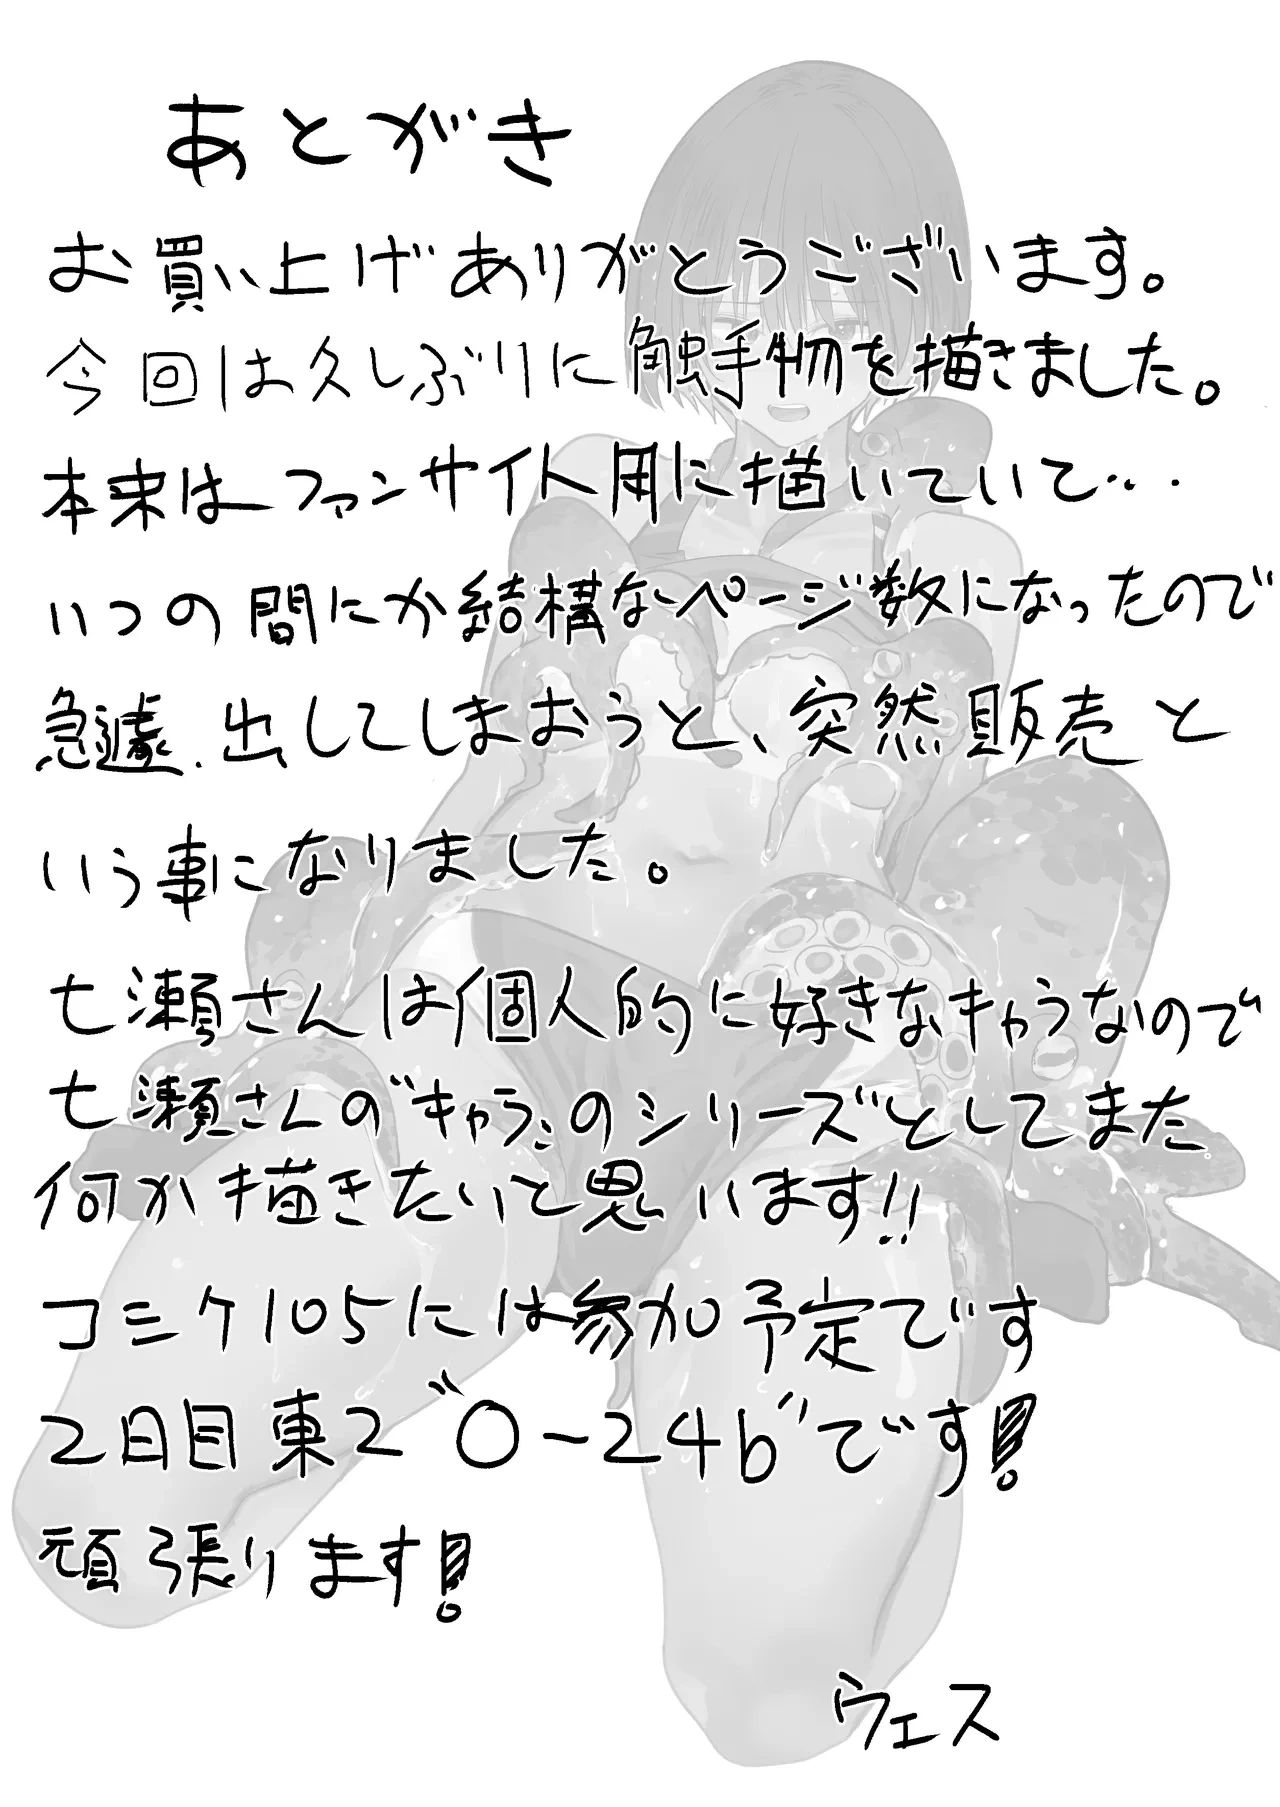 あとがき
お買い上げありがとうございます。
今回は久しぶりに触手物を描きました。
本来はファンサイト用に描いていて…
いつの間にか結構なページ数になったので
急遽、出してしまおうと、突然販売と
いう事になりました。
七瀬さんは個人的に好きなキャラなので
七瀬さんの"キャラ"のシリーズとしてまた
何か描きたいと思います!!
コミケ105には参加予定です
2日目東2"O-24b"です!
頑張ります!
ウェス